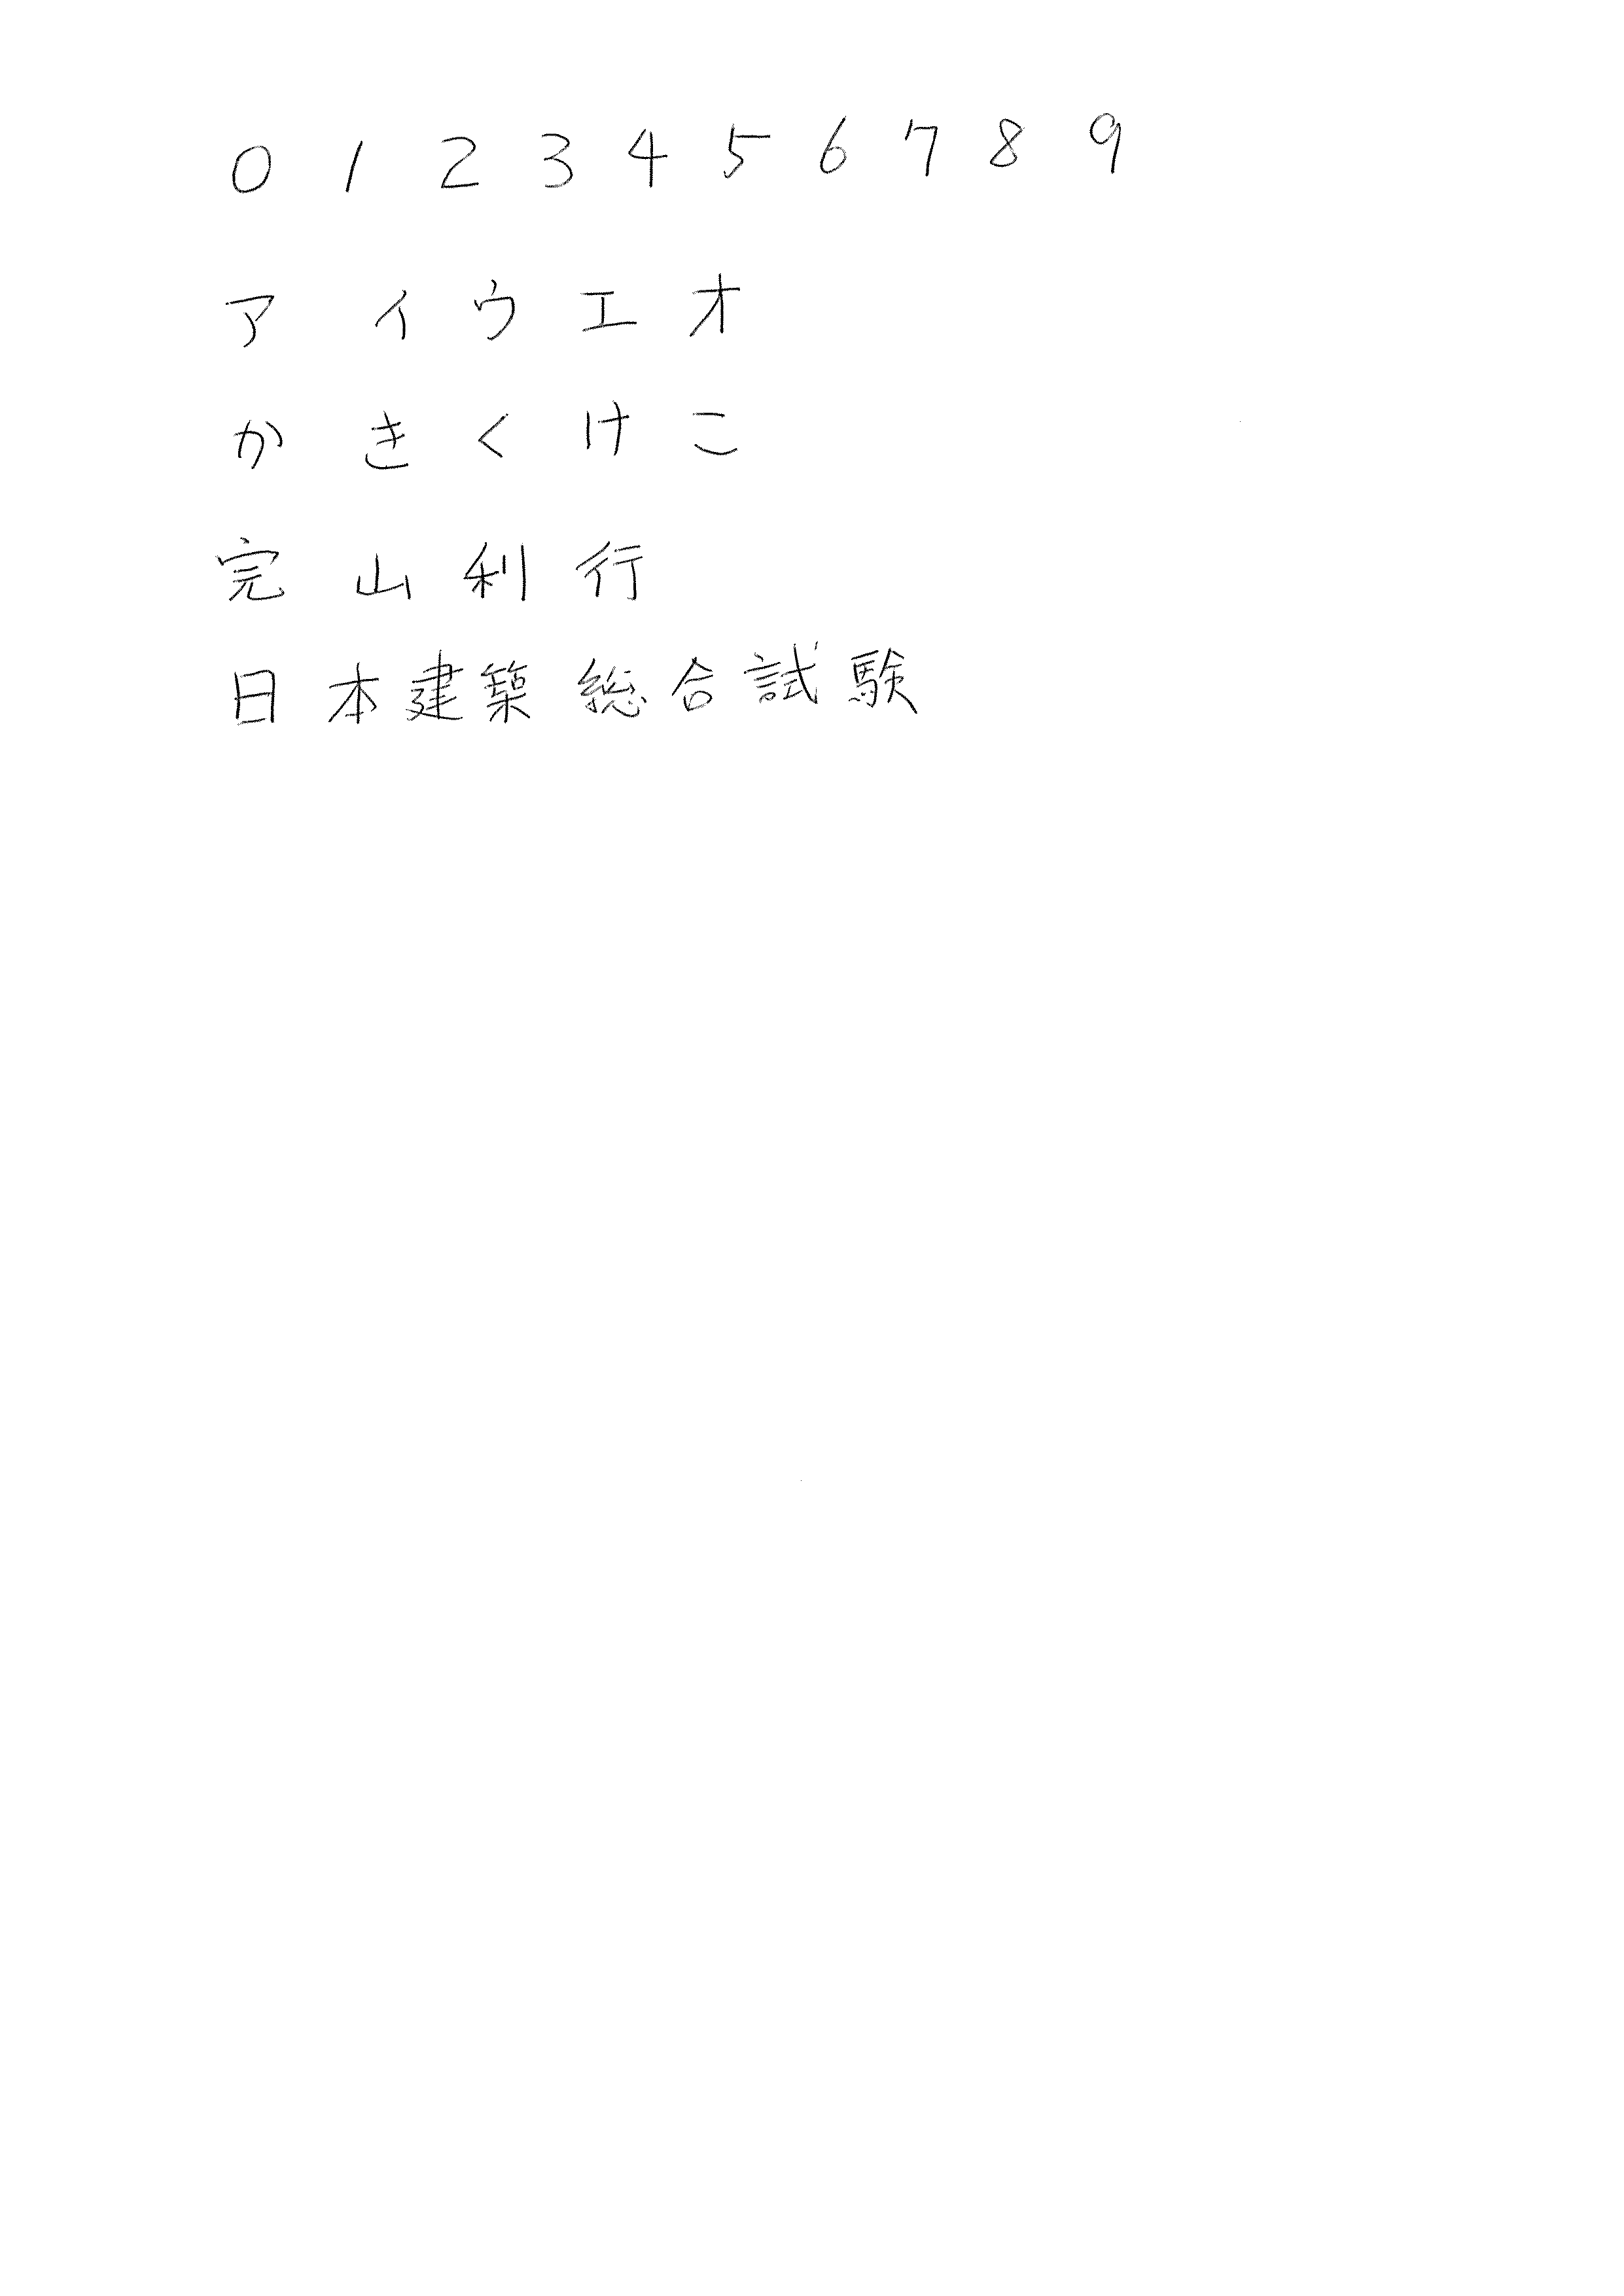 0 1 2 3 4 5 6 7 8 9
ア イ ウ エ オ
か き く け こ
完 山 利 行
日 本 建 築 総 合 試 験